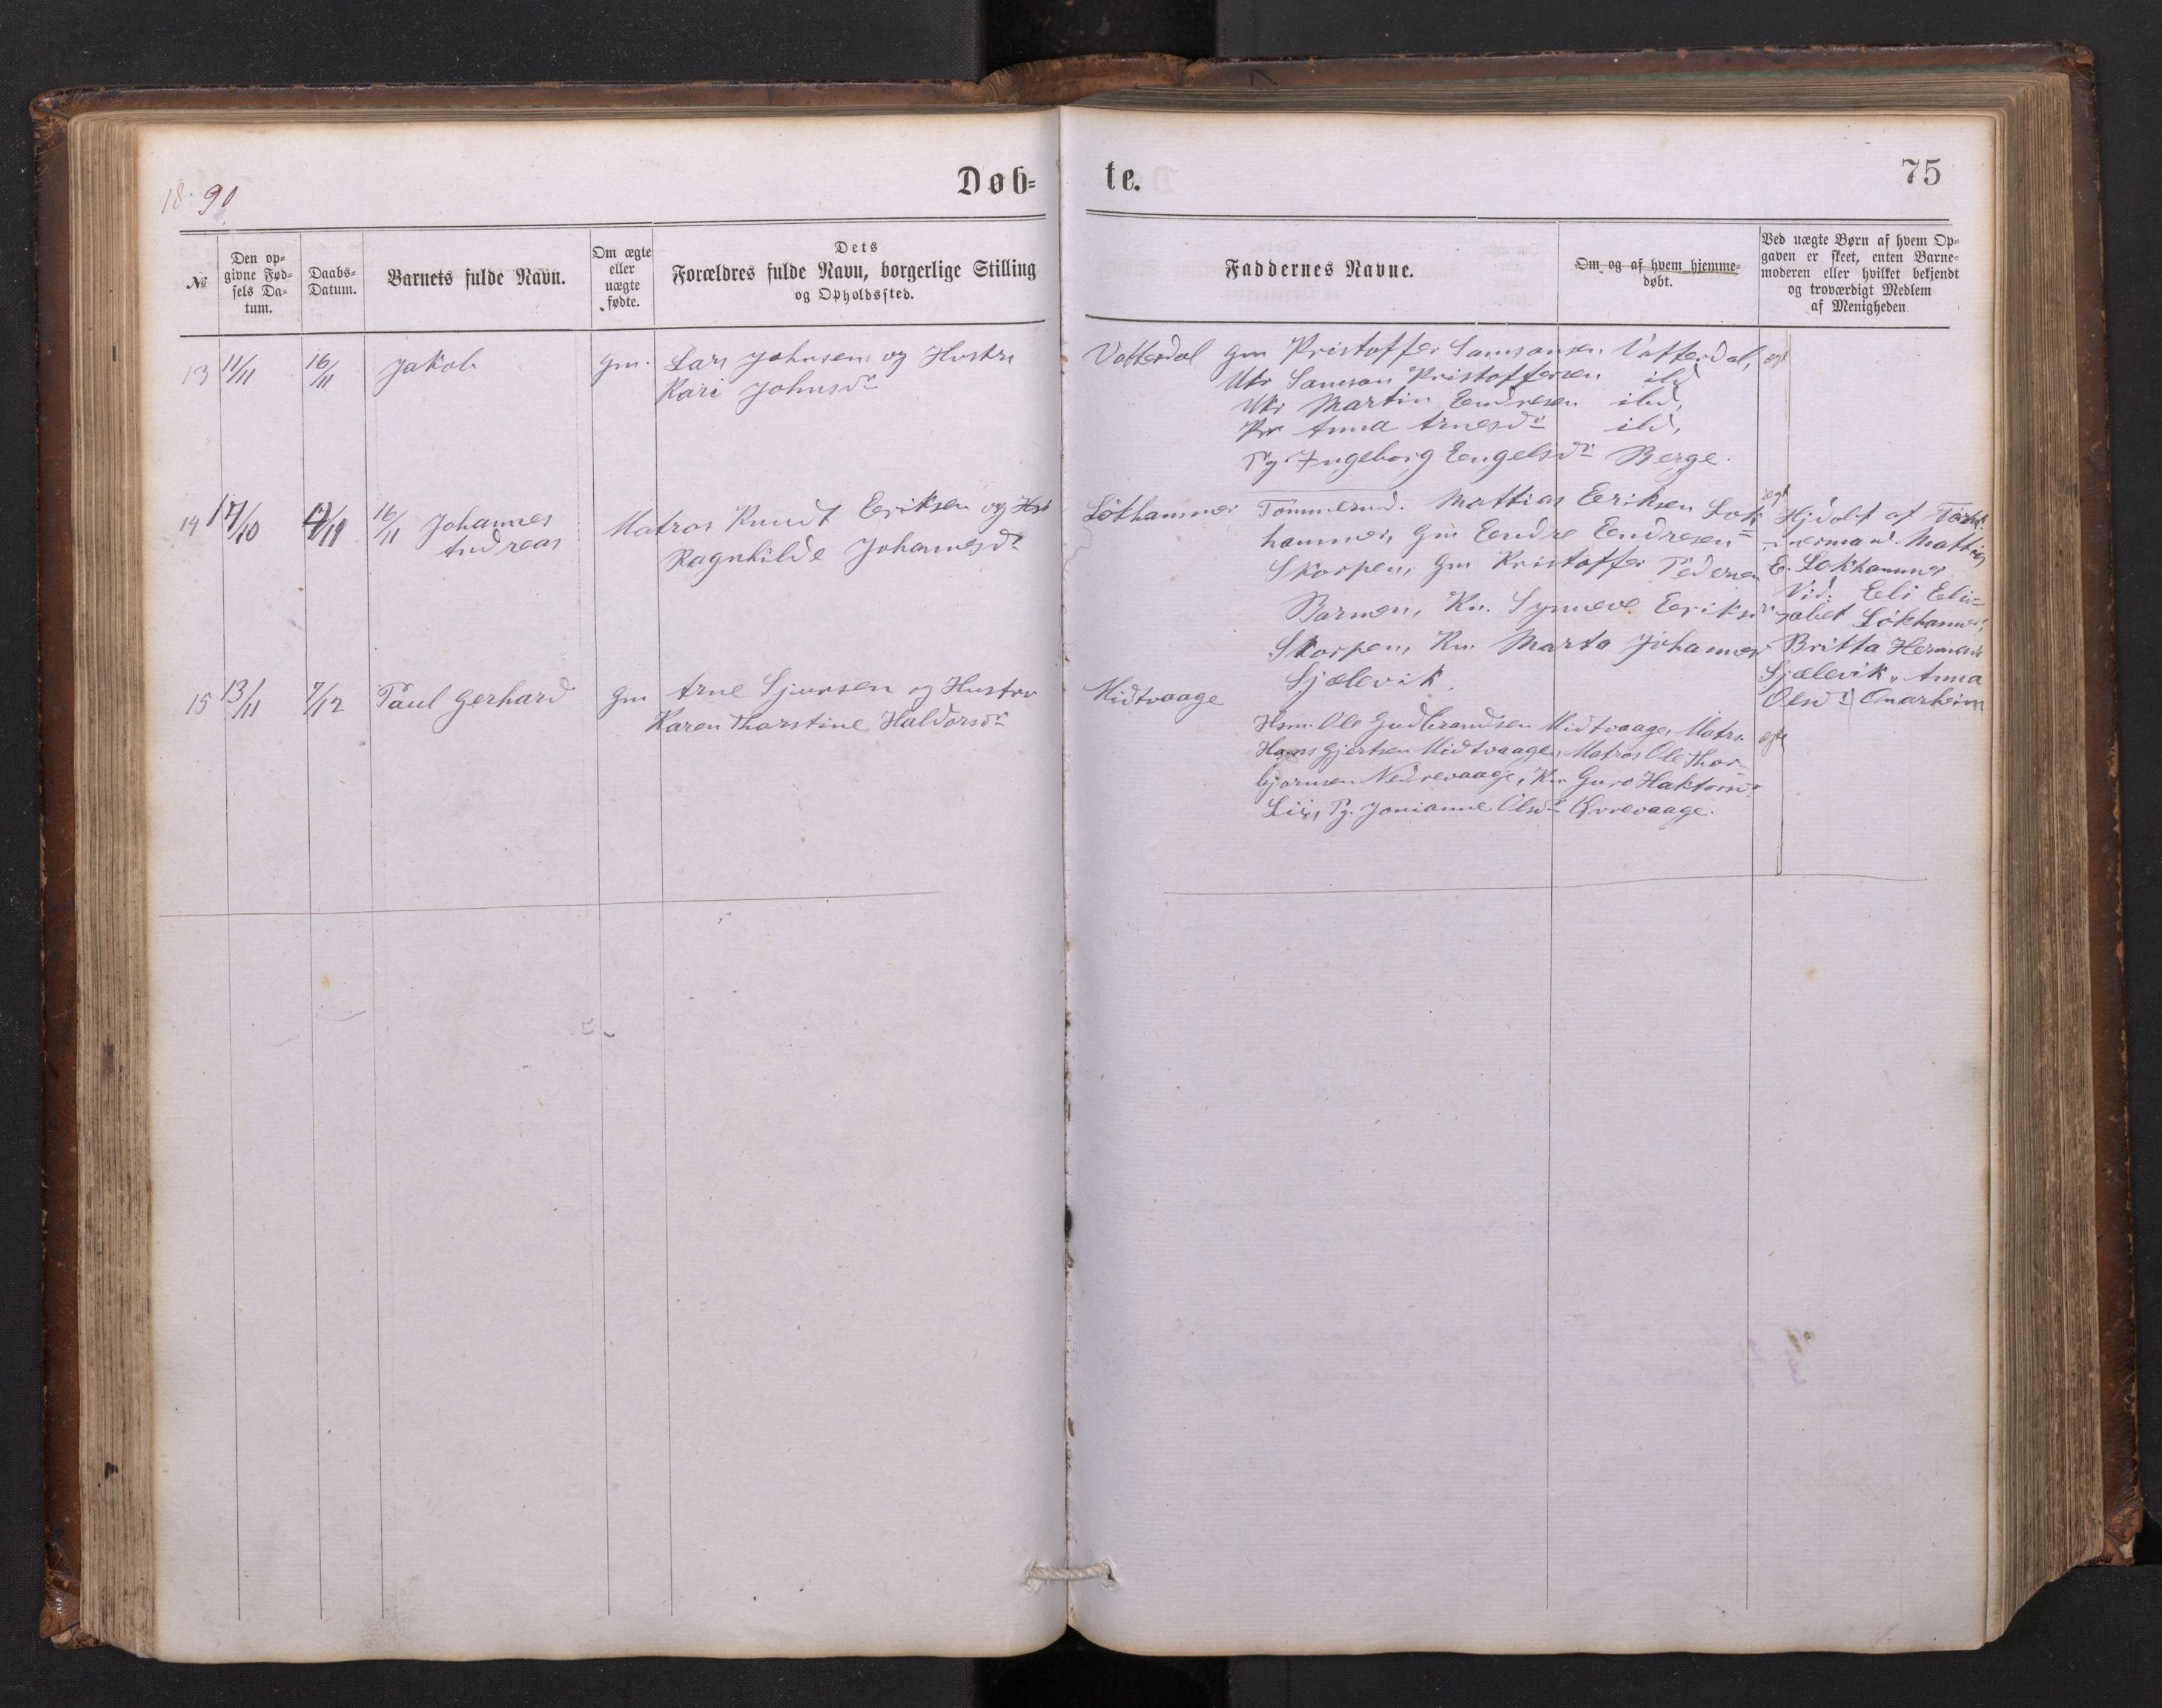 18 90
Døb-
te.
75
№
Den op-
givne Fød-
sels Da-
tum.
Daabs-
Datum.
Barnets fulde Navn.
Om ægte
eller
uægte
fødte.
Dets
Forældres fulde Navn, borgerlige Stilling
og Opholdssted.
Faddernes Navne.
Om og af hvem hjemme-
døbt.
Ved uægte Børn af hvem Op-
gaven er skeet, enten Barne-
moderen eller hvilket bekjendt
og troværdigt Medlem
af Menigheden
13 11/11 16/11 Jakob Gm. Lars Johnsen og Hustru
Kari Johnsdr
Vatterdal Gm Kristoffer Samsonsen Vatterdal, egt
Ukr Samson Kristoffersen ibd
Ukr Martin Endresen ibd,
Kr Anna Arnesdr ibd,
Pg. Ingeborg Engelsdr Berge.
14 17/10 16/11 Johannes
Andreas
Matros Knudt Eeriksen og Hst
Ragnhilde Johannesdr
Løkhammer Tømmermd. Mattias Eeriksen Løk-
hammer, Gm Eendre Eendresen
Skorpen, Gm Kristoffer Pedersen
Barmen, Kn. Synneve Eeriksdr
Skorpen, Kn. Marta Johannesdr
Sjælevik.
ægt
Hjdøbt af Tøm-
mermand Mattias
E. Løkhammer
Vid: Eli Elis-
abet Løkhammer,
Britta Hermans
Sjælevik, Anna
Olsdr Onarheim
15 13/11 7/12 Paul Gerhard Gm Arne Sjursen og Hustru
Karen Thorstine Haldorsdr
Midtvaage
Hsm. Ole Gudbrandsen Midtvaage, Matrs egt
Hans Gjertsen Midtvaage, Matros Ole Thor-
bjørnsen Nedrevaage, Kn. Guro Haktorsdr
Lii, Pg. Jonianne Olsdr Øvrevaage.